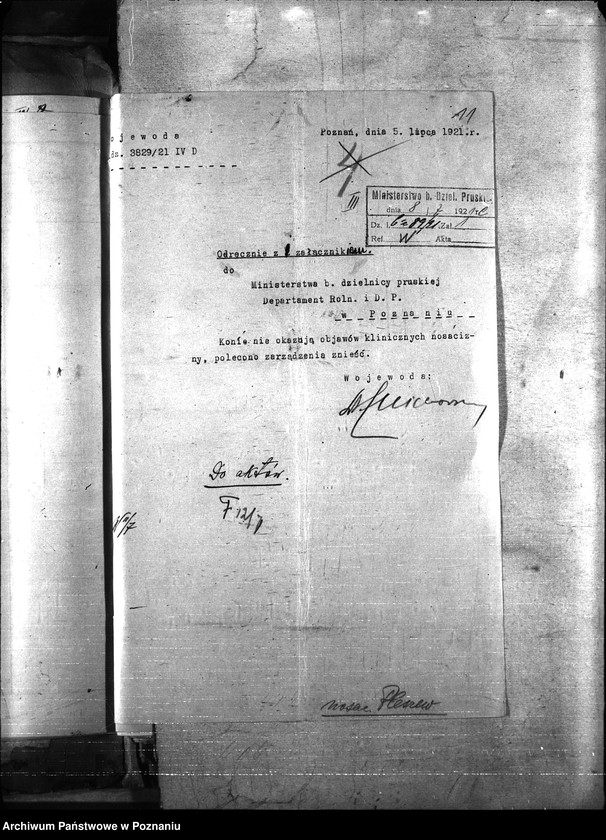 11
ojewoda
dz. 3829/21 IV D
Poznań, dnia 5. lipca 1921.r.
4
III
Ministerstwo b. Dziel. Pruski
dnia 8 / 7 192
Dz. l. Zał. 1
Ref. W Akta
Odręcznie z załącznikiem.
do
Ministerstwa b. dzielnicy pruskiej
Departament Roln. i D. P.
w Poznaniu
Konie nie okazują objawów klinicznych nosaciz-
ny, polecono zarządzenia znieść.
Wojewoda:
Do aktów.
F 12/7
nosac. Pleszew
Archiwum Państwowe w Poznaniu